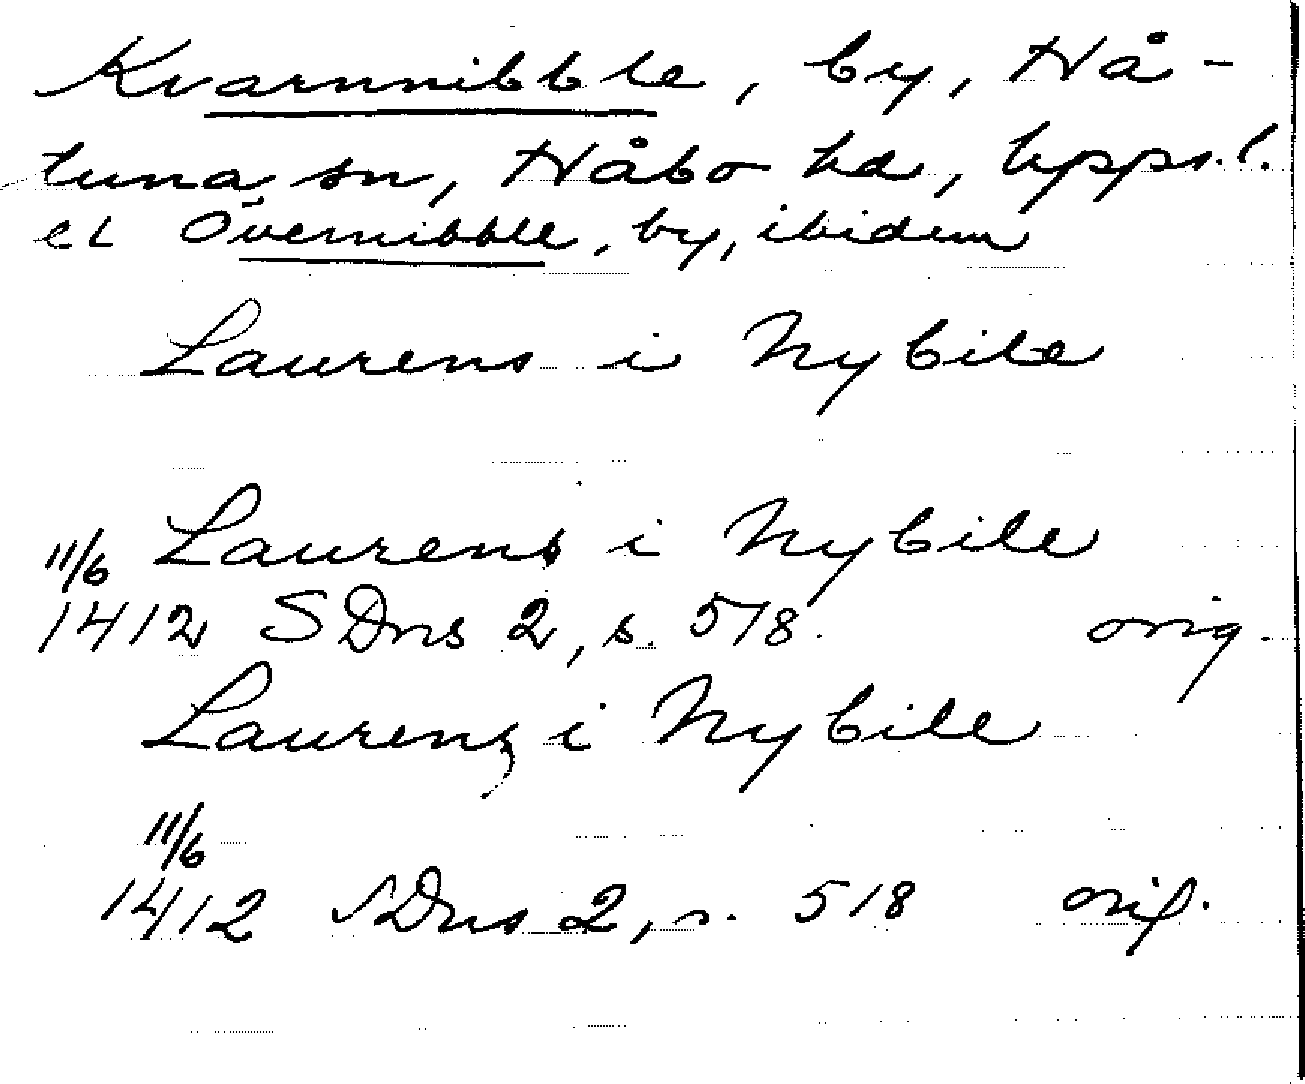 Kvarnnibble, by, Hå-
tuna sn, Håbo hd, Upps. l.
et Övernibble, by, ibidem
Laurens i Nybile
11/6 Laurens i Nybile
1412 SDns 2, s. 518. orig.
Laurens i Nybile
11/6
1412 SDns 2, s. 518 orig.